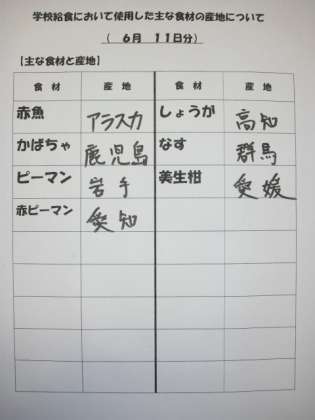 学校給食において使用した主な食材の産地について
( 6月 11日分)
【主な食材と産地】
食材 産地 食材 産地
赤魚 アラスカ しょうが 高知
かぼちゃ 鹿児島 なす 群馬
ピーマン 岩手 美生柑 愛媛
赤ピーマン 愛知